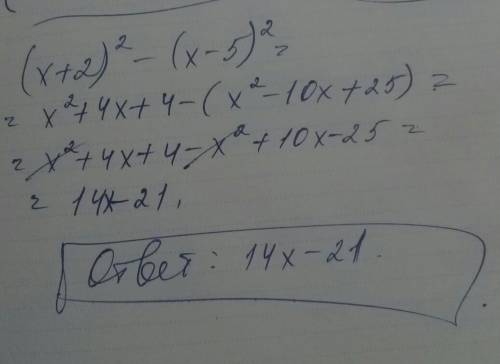 (x+2)² − (x−5)² =
= x²+4x+4−(x²−10x+25) =
= x²+4x+4−x²+10x−25 =
= 14x−21.
Ответ: 14x−21.